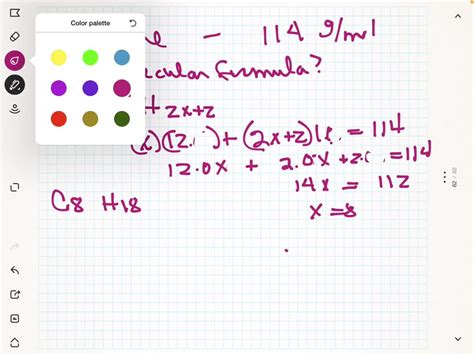 Color palette
- 114 g/mol
cular formula?
+ 2x+2
(x)(12. ) + (2x+2)1. = 114
12.0x + 2.0x + 2. = 114
14x = 112
x = 8
C8 H18
29 / 29